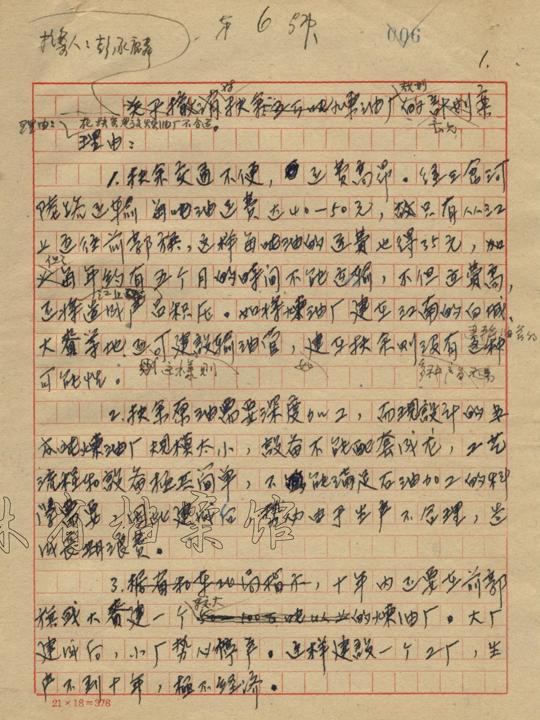 第6号
006
拟案人：彭永麟
1.
关于撤消扶余五万吨炼油厂的计划案
理由：
理由：
1.扶余交通不便，运费高昂。经三岔河
陆路运牛前每吨油运费达40—50元，故只有从江
上运往前郭旗，这样每吨油的运费也得35元，加
之每年约有五个月的时间不能运输，不但运费高，
还将造成产品积压。如将炼油厂建在江南的白城、
大赉等地还可建设输油管，建在扶余则没有这种
可能性。
2.扶余原油需要深度加工，而现设计的五
万吨炼油厂规模太小，设备不能配套成龙，工艺
流程和设备极其简单，不能满足石油加工的科
学需要，因此建成后，势必由于生产不合理，造
成长期浪费。
3.十年内还要在前郭
旗或大赉建一个较大的炼油厂。大厂
建成后，小厂势必停产。这样建设一个工厂，生
产不到十年，极不经济。
林省档案馆
21×18=378